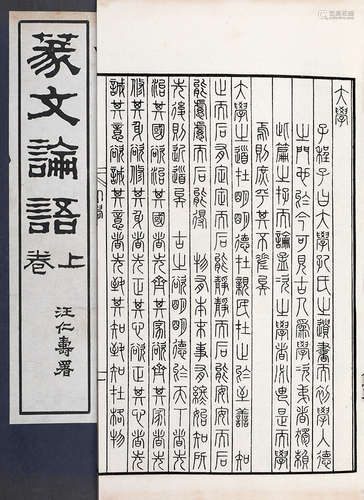 大學
子程子曰大學孔氏之遺書而初學入德
之門也於今可見古人為學次第者獨賴
此篇之存而論孟次之學者必由是而學
焉則庶乎其不差矣
大學之道在明明德在親民在止於至善 知
止而后有定定而后能靜靜而后能安安而后
能慮慮而后能得 物有本末事有終始知所
先後則近道矣 古之欲明明德於天下者先
治其國欲治其國者先齊其家欲齊其家者先
修其身欲修其身者先正其心欲正其心者先
誠其意欲誠其意者先致其知致知在格物
篆文論語
上卷
汪仁壽署